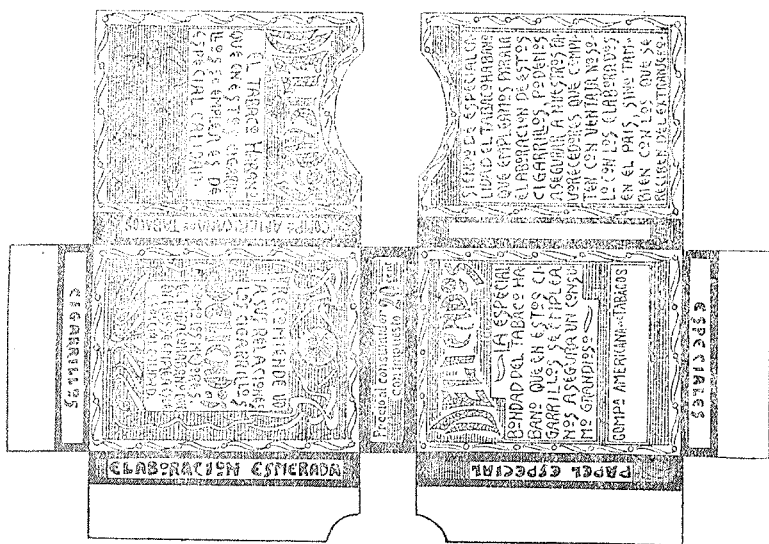 DELICADOS
EL TABACO HABANO
QUE EN ESTOS CIGARRI-
LLOS SE EMPLEA ES DE
ESPECIAL CALIDAD
COMPª AMERICANA DE TABACOS
SIENDO DE ESPECIAL CA-
LIDAD EL TABACO HABANO
QUE EMPLEAMOS PARA LA
ELABORACION DE ESTOS
CIGARRILLOS, PODEMOS
ASEGURAR A NUESTROS FA-
VORECEDORES QUE COMPI-
TEN CON VENTAJA NO SO-
LO CON LOS ELABORADOS
EN EL PAIS, SINO TAM-
BIEN CON LOS QUE SE
RECIBEN DEL EXTRANJERO.
CIGARRILLOS
RECOMIENDE VD
A SUS RELACIONES
LOS CIGARRILLOS
DELICADOS
EL TABACO HABANO QUE
CALIDAD
Precio al consumidor 20 cent
con impuesto de
DELICADOS
LA ESPECIAL
BONDAD DEL TABACO HA-
BANO QUE EN ESTOS CI-
GARRILLOS SE EMPLEA
NOS ASEGURA UN CONSU-
MO GRANDIOSO
COMPª AMERICANA DE TABACOS
ESPECIALES
ELABORACION ESMERADA
PAPEL ESPECIAL